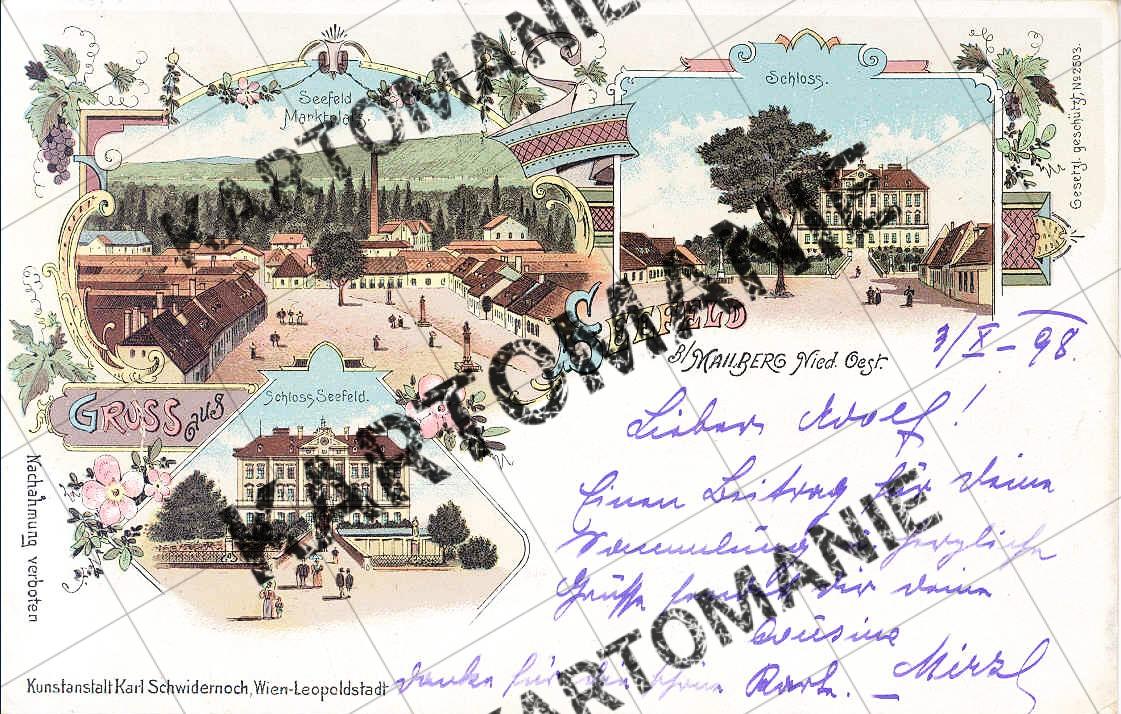 Seefeld
Marktplatz.
Schloss.
Gesetzl. geschützt, No 2503.
GRUSS aus
SEEFELD
B/ MAILBERG Nied. Oest.
Schloss Seefeld.
Nachahmung verboten
Kunstanstalt Karl Schwidernoch, Wien-Leopoldstadt
3/X – 98.
Lieber Adolf!
Einen Beitrag für Deine
Sammlung herzliche
Grüsse sendet dir deine
Cousine
Mirzl
Danke für die schöne Karte.
KARTOMANIE
KARTOMANIE
KARTOMANIE
KARTOMANIE